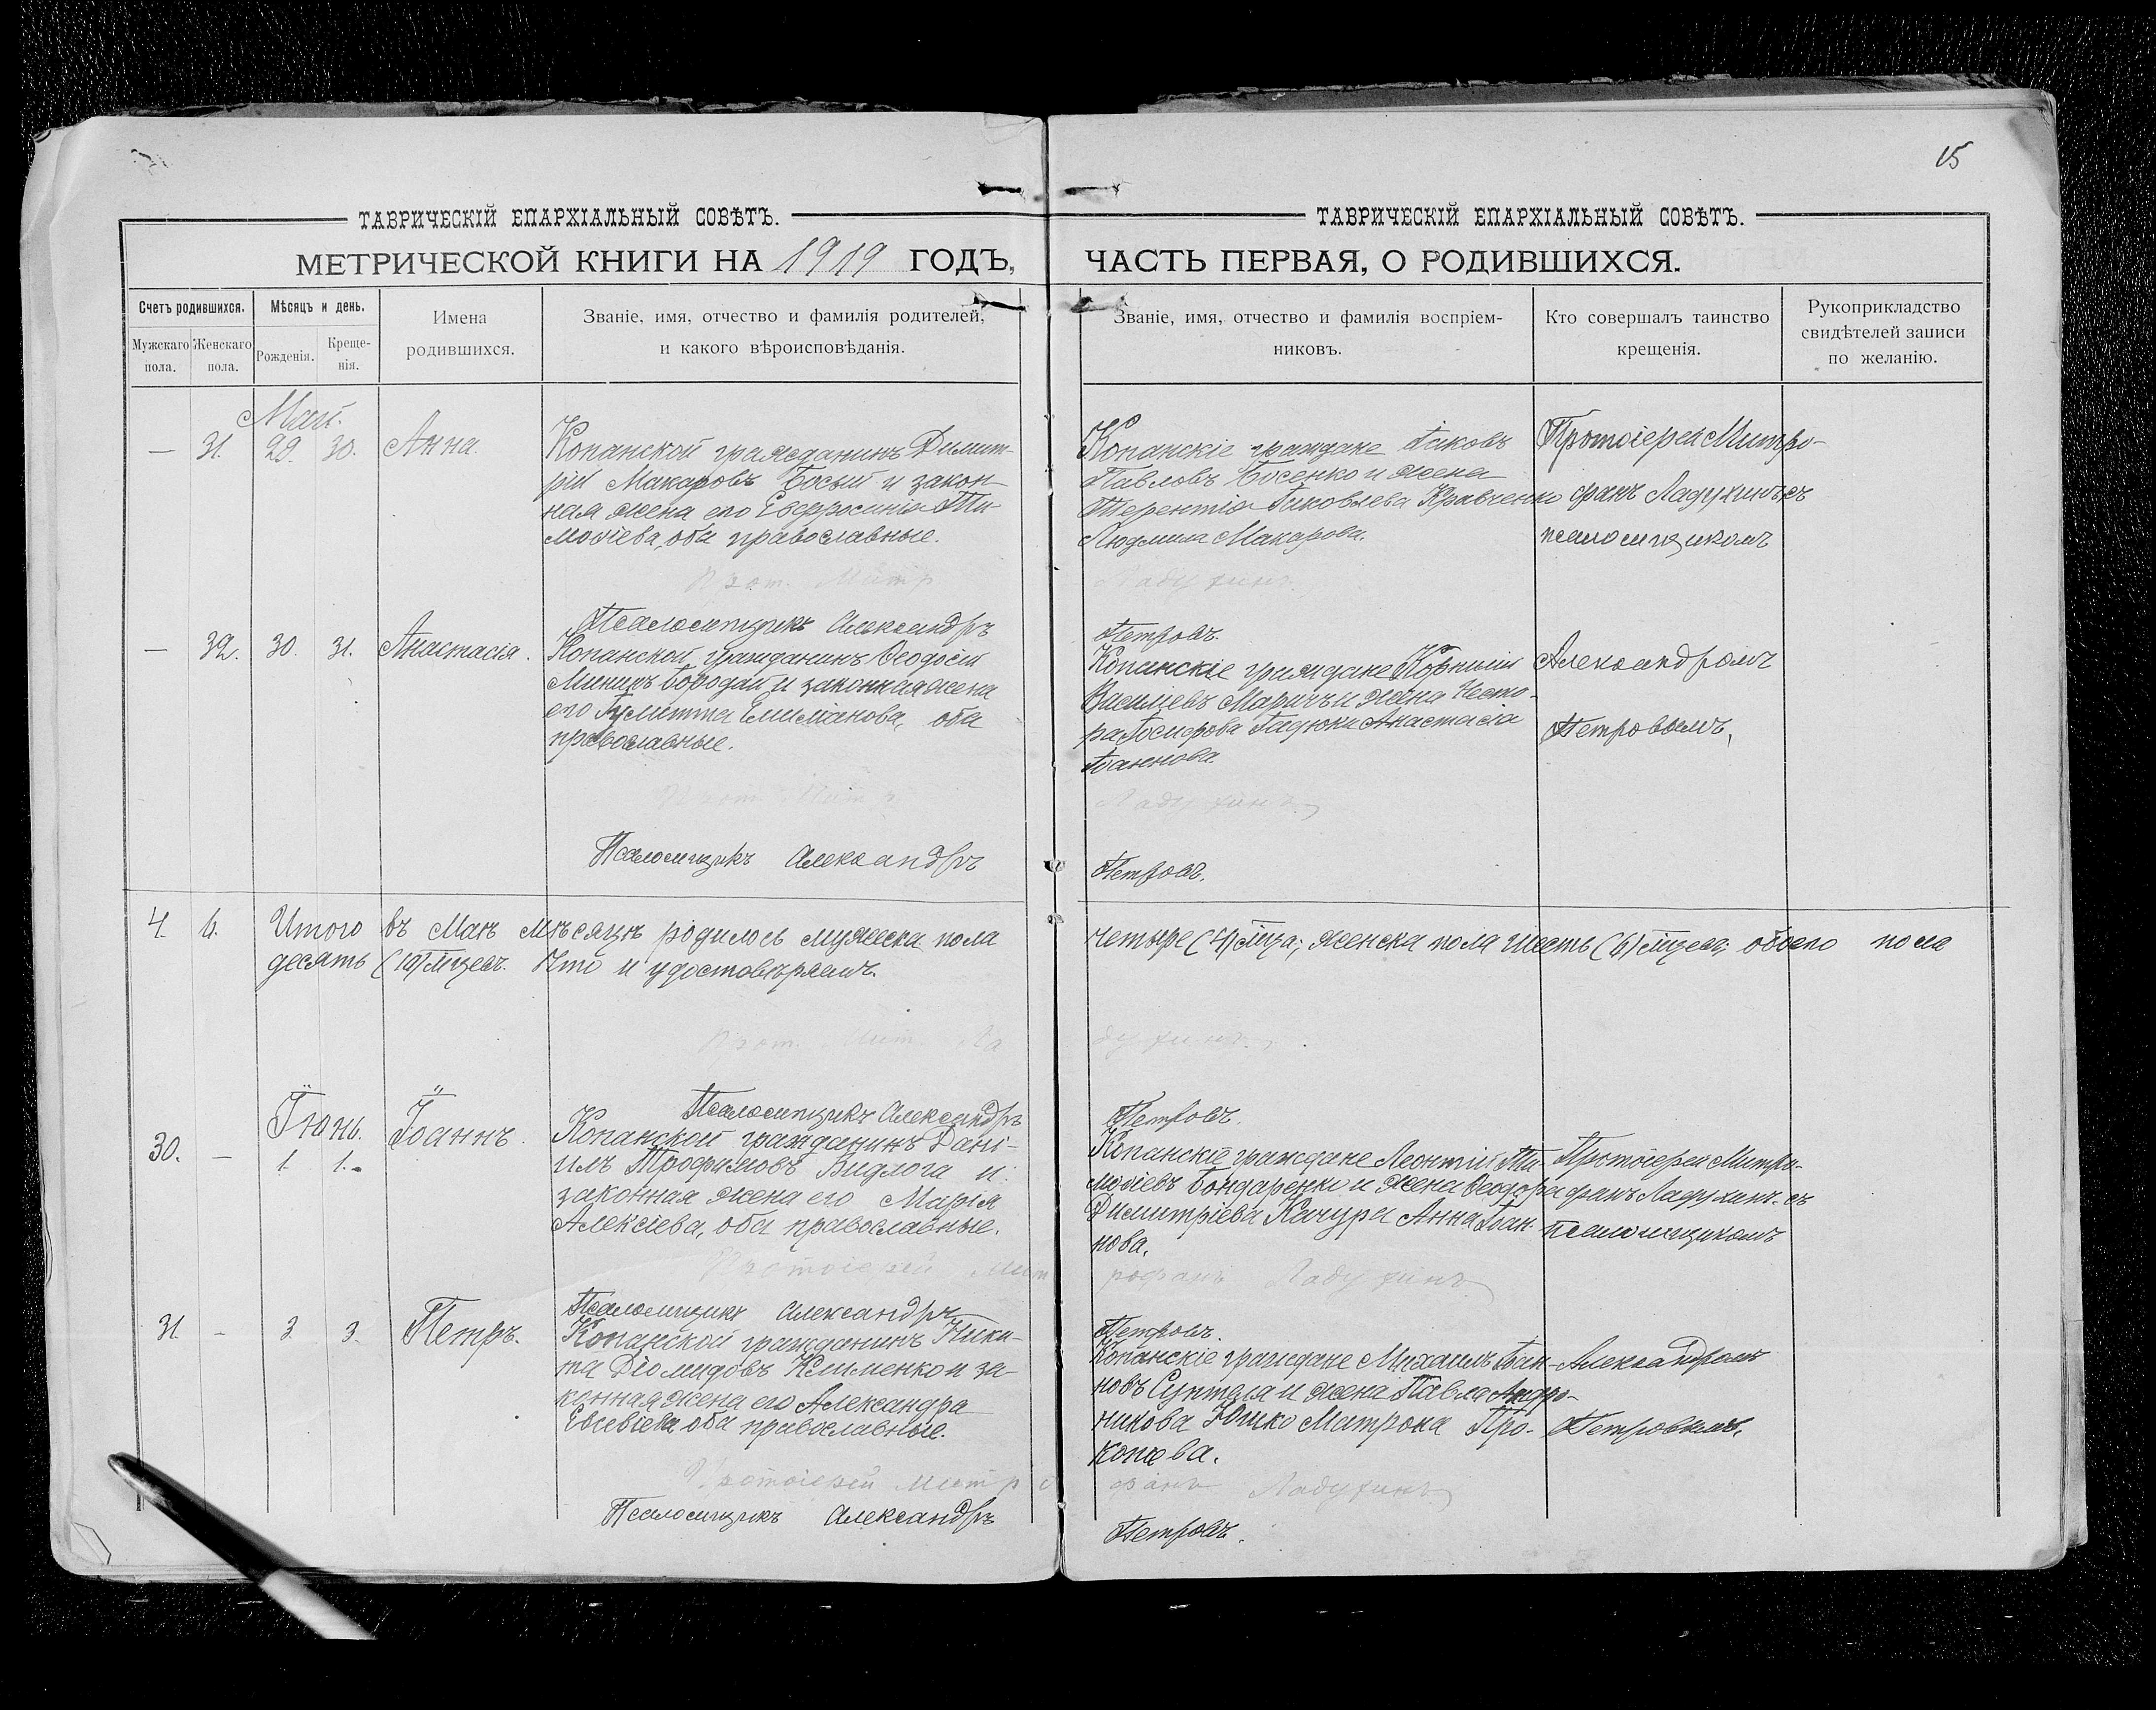 15
ТАВРИЧЕСКІЙ ЕПАРХІАЛЬНЫЙ СОВѢТЪ.
ТАВРИЧЕСКІЙ ЕПАРХІАЛЬНЫЙ СОВѢТЪ.
МЕТРИЧЕСКОЙ КНИГИ НА 1919 ГОДЪ,
ЧАСТЬ ПЕРВАЯ, О РОДИВШИХСЯ.
Счетъ родившихся.
Мужскаго пола.
Женскаго пола.
Мѣсяцъ и день.
Рожденія.
Креще-
нія.
Имена
родившихся.
Званіе, имя, отчество и фамилія родителей,
и какого вѣроисповѣданія.
Званіе, имя, отчество и фамилія воспріем-
никовъ.
Кто совершалъ таинство
крещенія.
Рукоприкладство
свидѣтелей записи
по желанію.
Май.
— 31. 29. 30. Анна.
Копанской гражданинъ Димит-
рій Макаровъ Босый и закон-
ная жена его Евфросинія Ти-
моѳіева, оба православные.
Копанскіе граждане Іаковъ
Павловъ Босенко и жена
Терентія Іаковлева Кравченко
Людмила Макарова.
Протоіерей Митро-
фанъ Ладухинъ съ
псаломщикомъ
Прот. Митр
Ладухинъ.
Псаломщикъ Александръ
Петровъ.
— 32. 30. 31. Анастасія.
Копанской гражданинъ Ѳеодосій
Мининъ Бородай и законная жена
его Іулитта Емиліанова, оба
православные.
Копанскіе граждане Корнилій
Василіевъ Маричъ и жена Несто-
ра Іосифова Гадюки Анастасія
Іоаннова.
Александромъ
Петровымъ.
Прот. Митр
Ладухинъ.
Псаломщикъ Александръ
Петровъ.
4. 6. Итого въ Маѣ мѣсяцѣ родилось мужеска пола
четыре (4) лица; женска пола шесть (6) лицевъ; обоего пола
десять (10) лицевъ. Что и удостовѣряемъ.
Прот. Мит. Ла
духинъ.
Псаломщикъ Александръ
Петровъ.
Іюнь.
30. — 1. 1. Іоаннъ.
Копанской гражданинъ Дані-
илъ Трофимовъ Бидлога и
законная жена его Марія
Алексіева, оба православные.
Копанскіе граждане Леонтій Ти-
моѳіевъ Бондаренко и жена Ѳеодора
Димитріева Качура Анна Іоан-
нова.
Протоіерей Митро-
фанъ Ладухинъ съ
псаломщикомъ
Протоіерей Мит
рофанъ Ладухинъ
Псаломщикъ Александръ
Петровъ.
31 – 3. 3. Петръ.
Копанской гражданинъ Ники-
та Діомидовъ Клименко и за-
конная жена его Александра
Евсевіева, оба православные.
Копанскіе граждане Михаилъ Іоан-
новъ Суптеля и жена Павла Андро-
никова Юшко Матрона Про-
копіева.
Александромъ
Петровымъ.
Протоіерей Митро
фанъ Ладухинъ
Псаломщикъ Александръ
Петровъ.